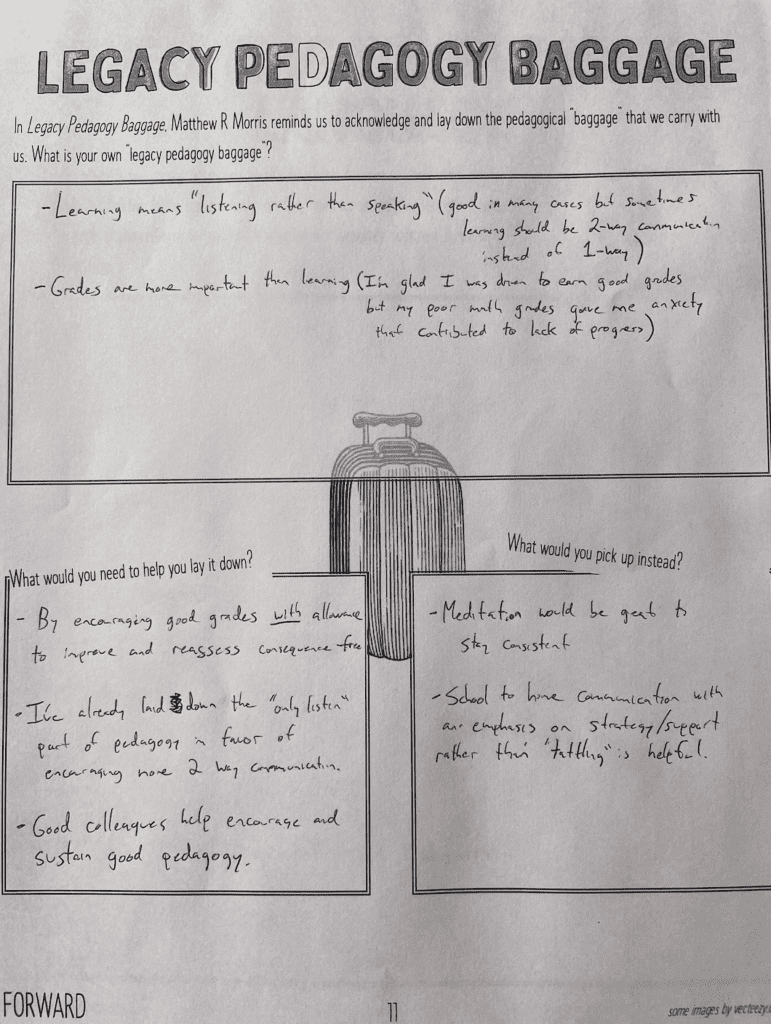 LEGACY PEDAGOGY BAGGAGE
In Legacy Pedagogy Baggage, Matthew R Morris reminds us to acknowledge and lay down the pedagogical "baggage" that we carry with
us. What is your own "legacy pedagogy baggage"?
- Learning means "listening rather than speaking" (good in many cases but sometimes
learning should be 2-way communication
instead of 1-way)
- Grades are more important than learning (I'm glad I was driven to earn good grades
but my poor math grades gave me anxiety
that contributed to lack of progress)
What would you need to help you lay it down?
- By encouraging good grades with allowance
to improve and reassess consequence-free
- I've already laid down the "only listen"
part of pedagogy in favor of
encouraging more 2 way communication.
- Good colleagues help encourage and
sustain good pedagogy.
What would you pick up instead?
- Meditation would be great to
stay consistent
- School to home communication with
an emphasis on strategy/support
rather than "tattling" is helpful.
FORWARD
11
some images by vecteezy.